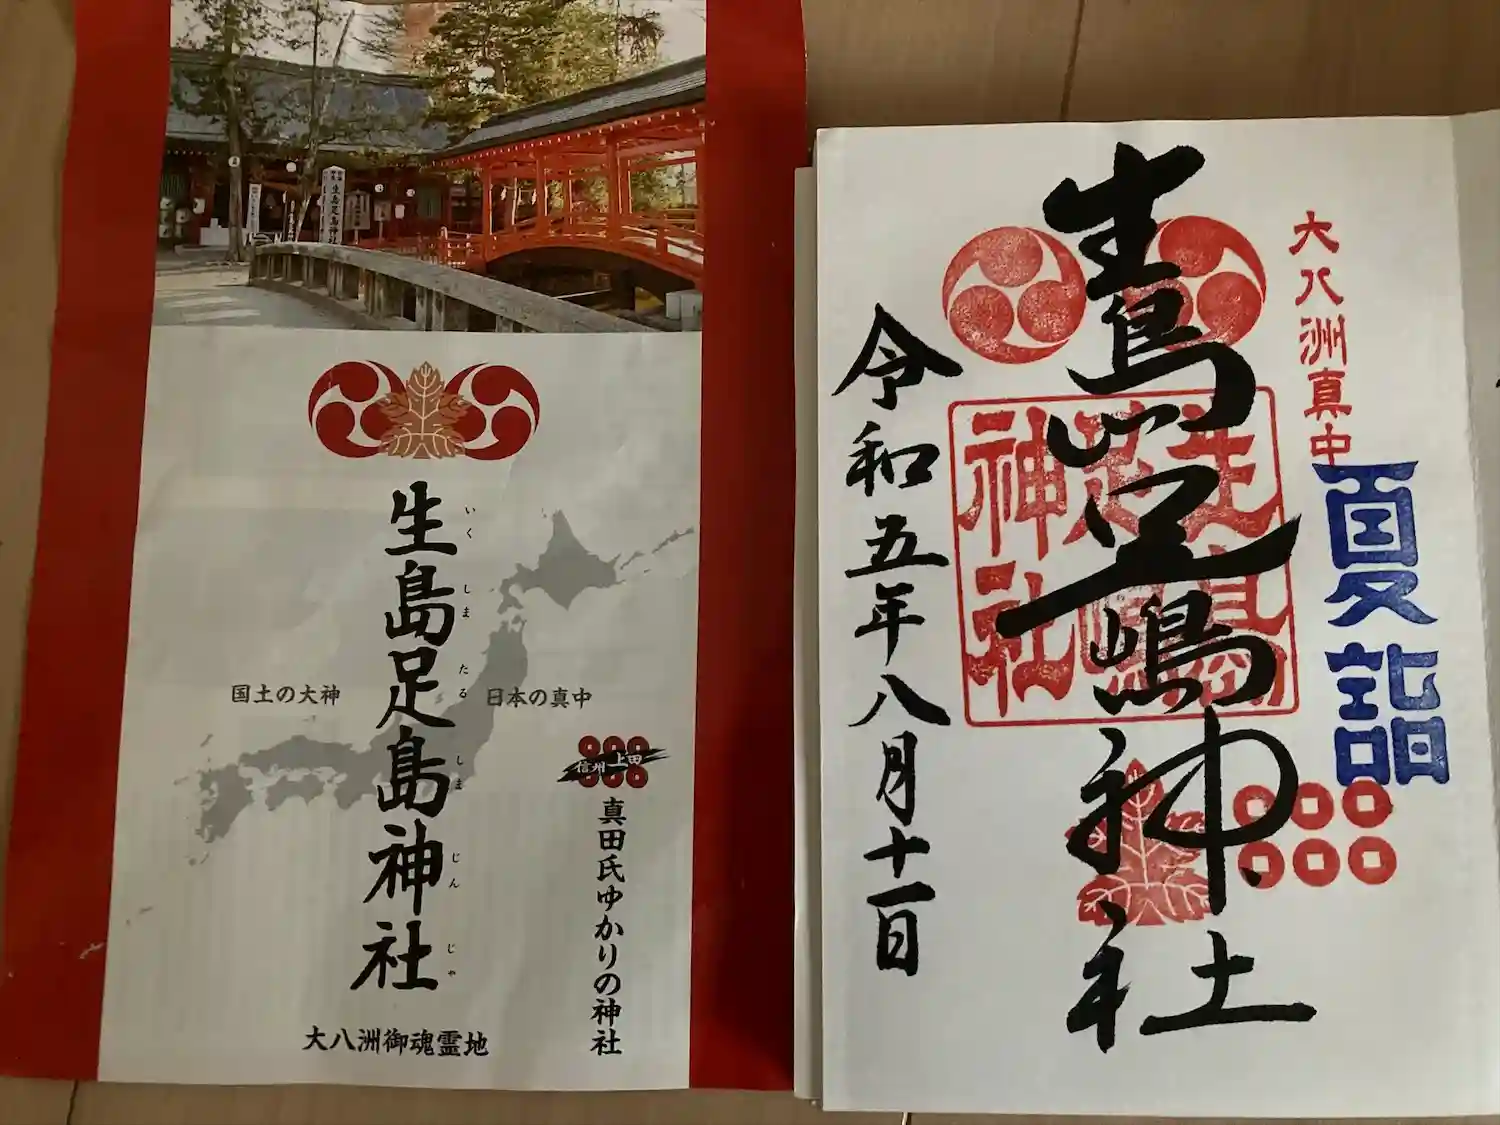 生島足島神社
生島足島神社
いくしまたるしまじんじゃ
国土の大神
日本の真中
信州上田
真田氏ゆかりの神社
大八洲御魂霊地
大八洲真中
夏詣
生島足嶋神社
生島足嶋神社
令和五年八月十一日